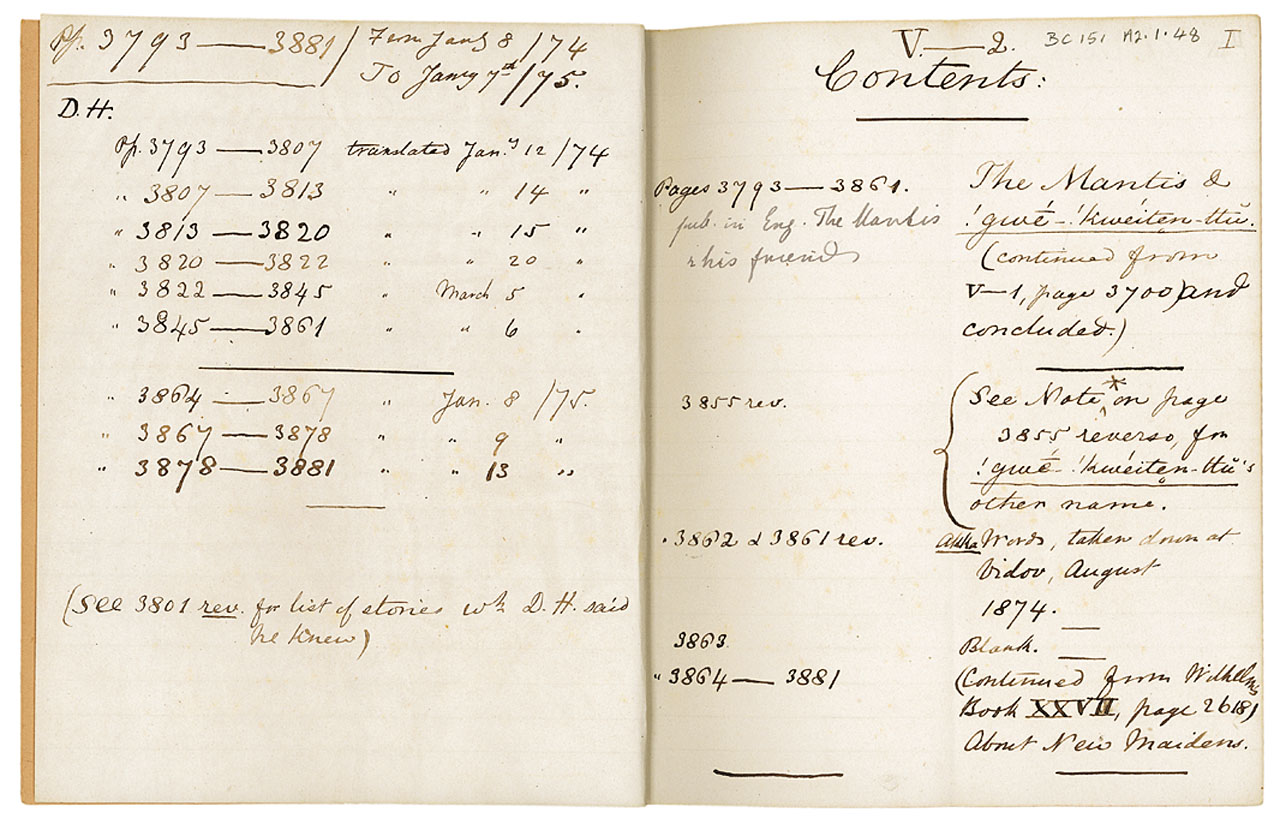 Pp. 3793 — 3881 / From Jany 8 /74
To Jany 7th /75.
D. H.
Pp. 3793 — 3807 translated Jany 12 /74
" 3807 — 3813 " " 14 "
" 3813 — 3820 " " 15 "
" 3820 — 3822 " " 20 "
" 3822 — 3845 " March 5 "
" 3845 — 3861 " " 6 "
" 3864 — 3867 " Jan. 8 /75.
" 3867 — 3878 " " 9 "
" 3878 — 3881 " " 13 "
(See 3801 rev. for list of stories wh D. H. said
he knew)
V — 2. BC 151 A2.1.48 I
Contents:
Pages 3793 — 3861. The Mantis &
pub. in Eng. The Mantis !gwĕ́-!kwéitẹn-ttŭ.
& his friend (continued from
V—1, page 3700) and
concluded.)
3855 rev. (See Note * on page
3855 reverso, for
!gwĕ́-!kwéitẹn-ttŭ's
other name.
3862 & 3861 rev. Akka Words, taken down at
Vidov, August
1874.
3863 Blank.
" 3864 — 3881 (Continued from Wilhelm's
Book XXVII, page 2618)
About New Maidens.